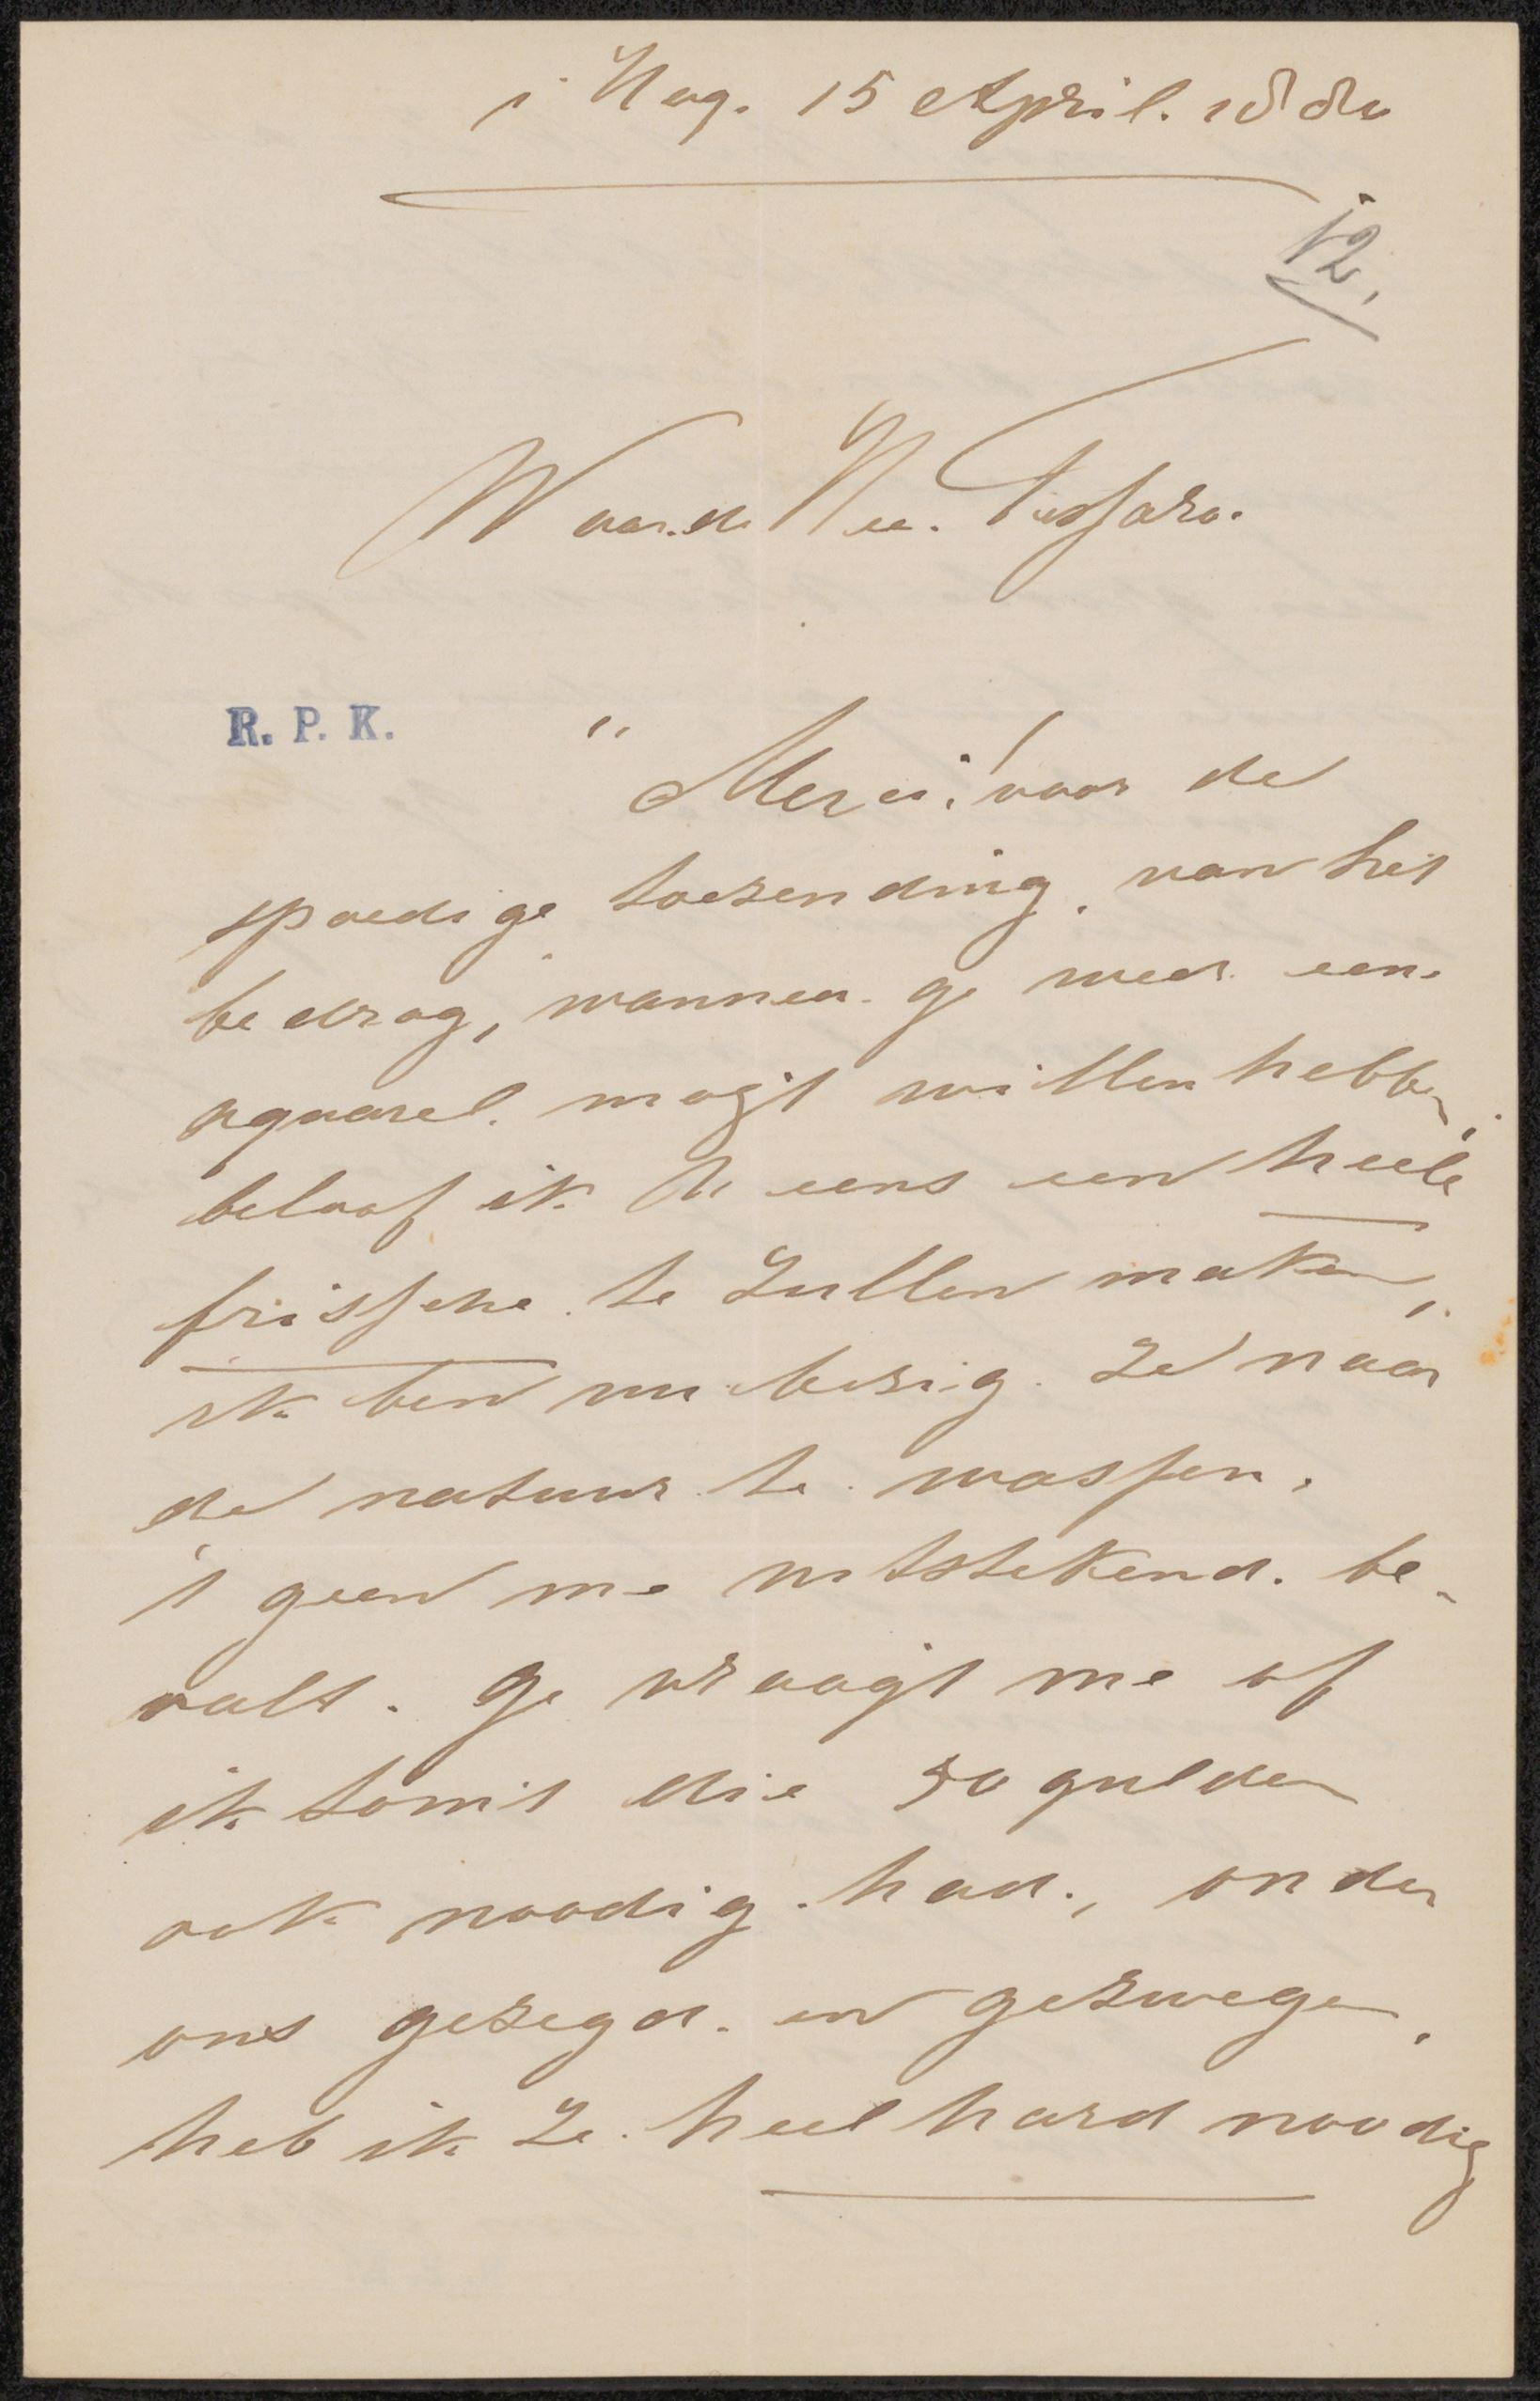 's Hag. 15 April. 188
12.
Waarde Hee. Tessaro.
R. P. K.
" Merci! voor de
spoedige toezending, van het
bedrag, wanneer ge weer eens
aquarel. mogt willen hebben,
beloof ik U eens een heele
frissche te zullen maken,
ik ben nu bezig ze naar
de natuur te wassen,
't geen me uitstekend. be-
valt. Ge vraagt me of
ik somis die 50 gulden
ook noodig had., onder
ons gezegd. en gezwegen,
heb ik ze heel hard noodig